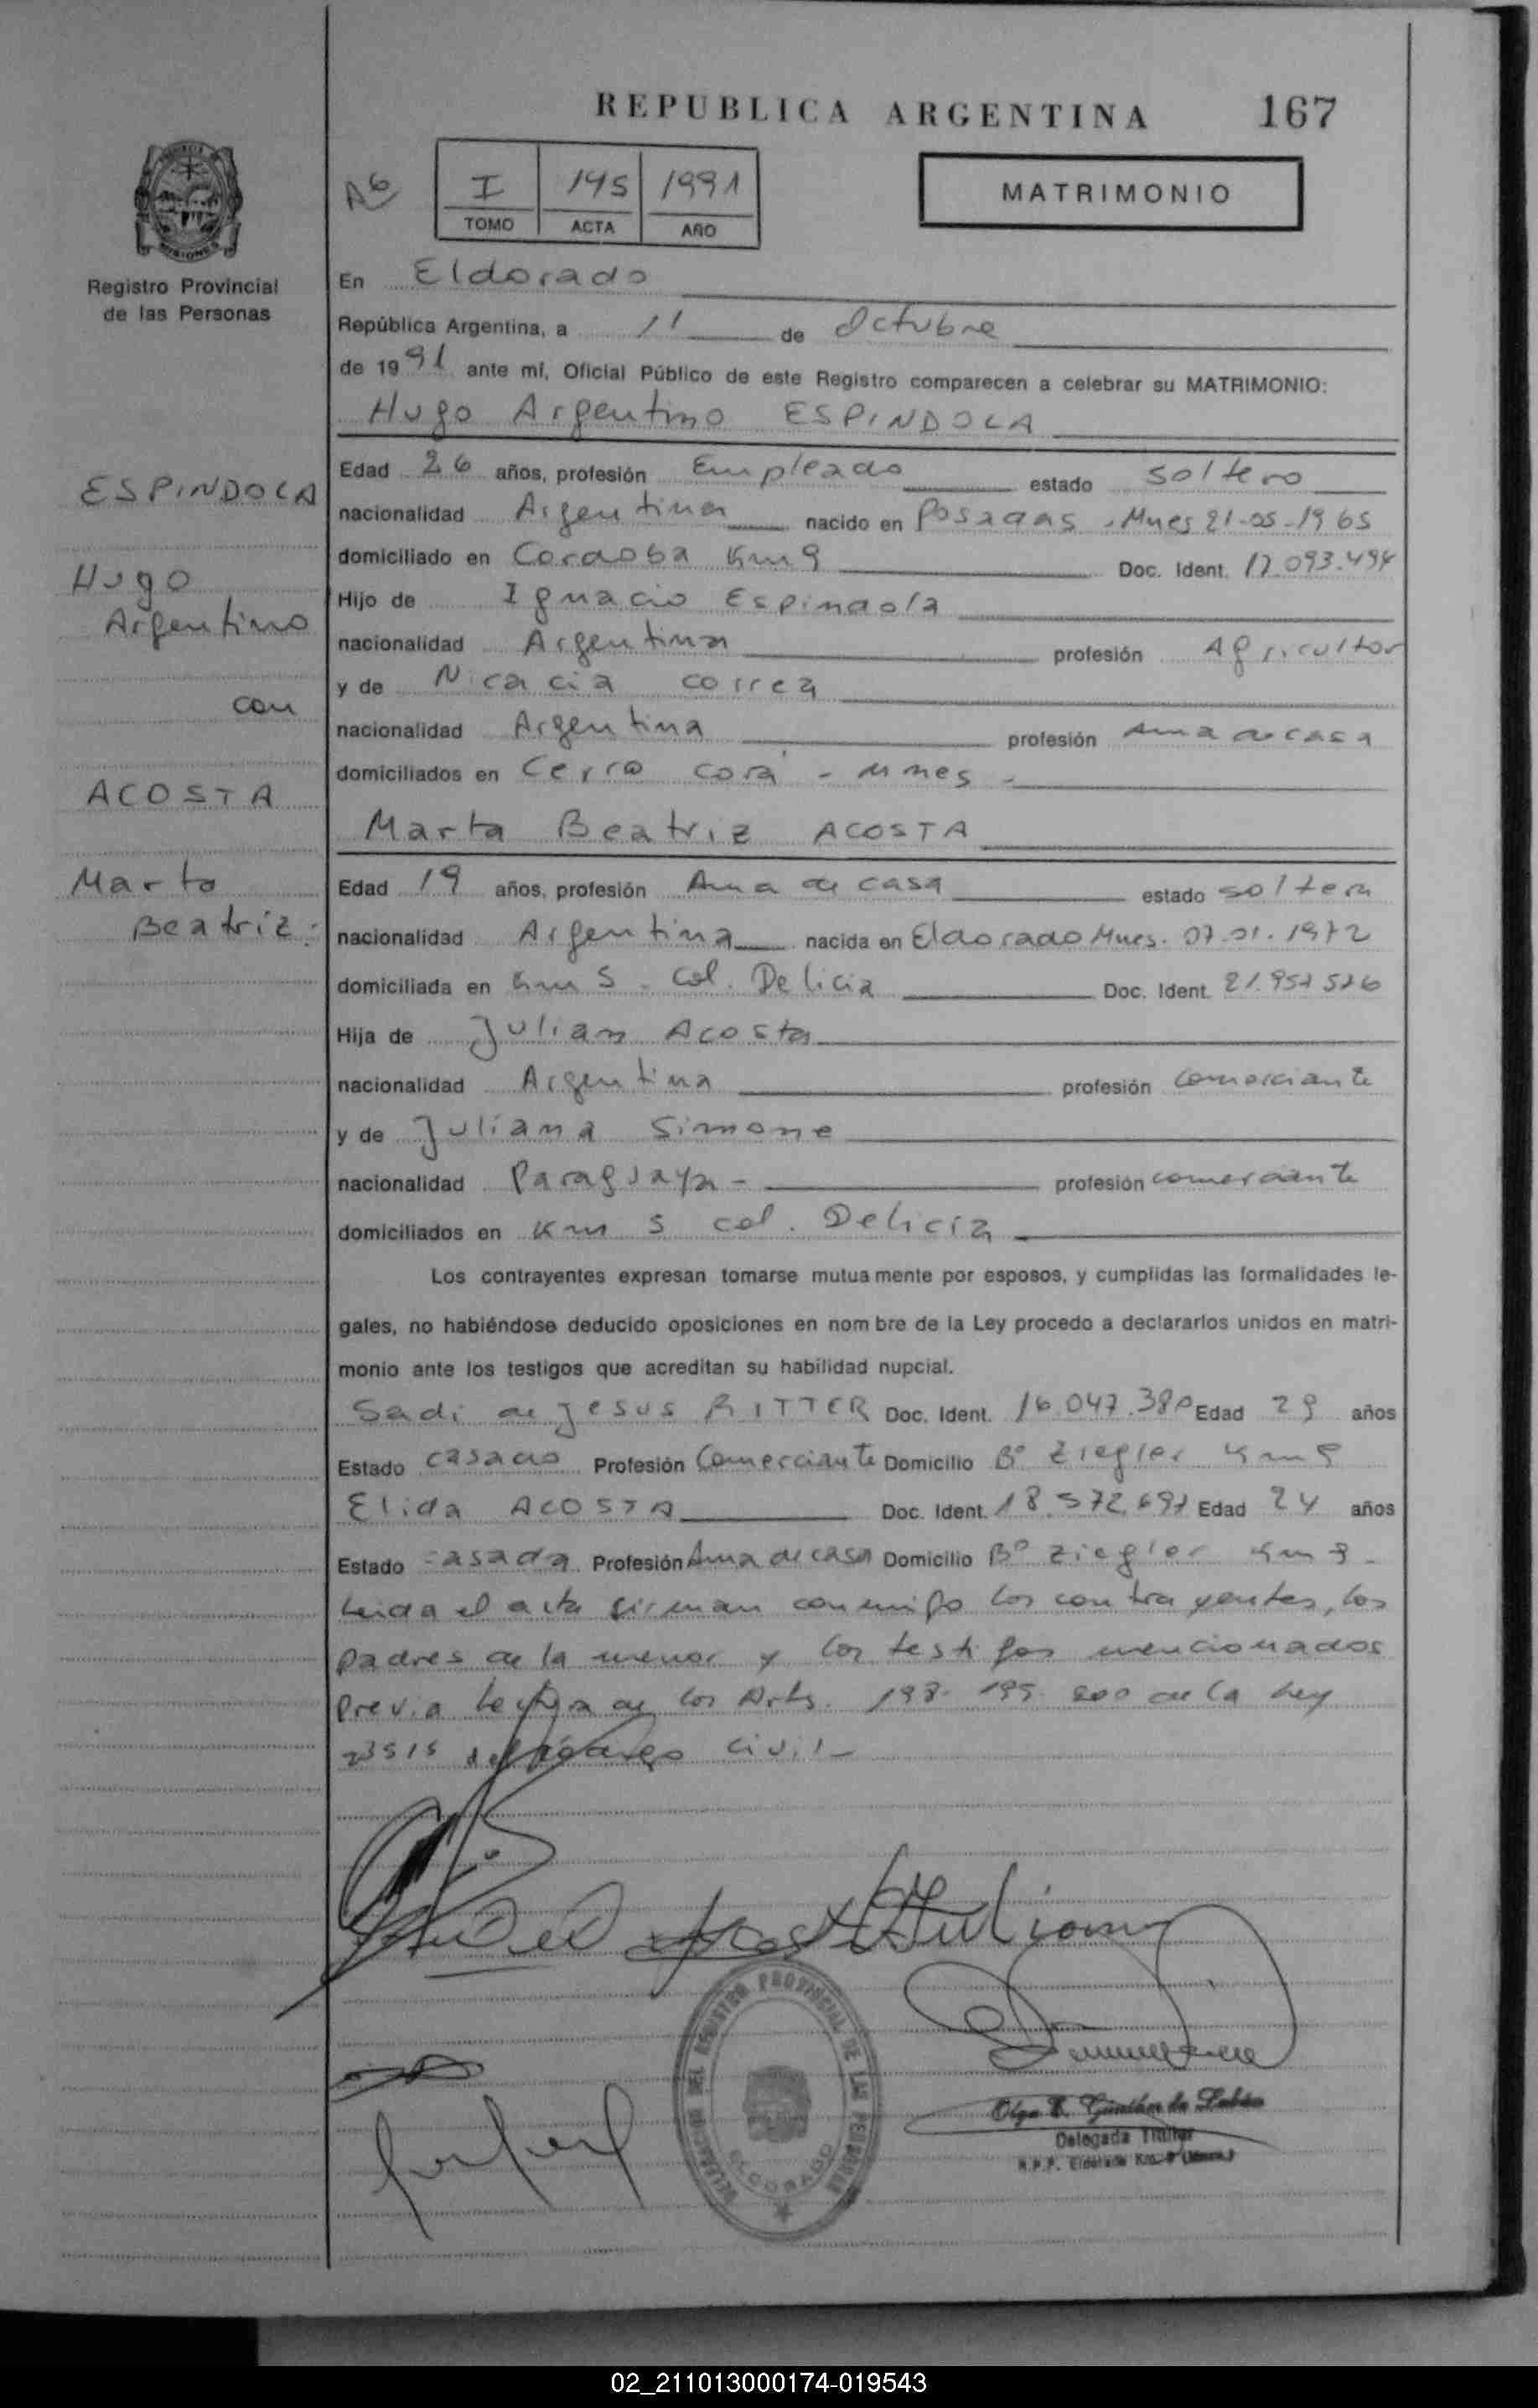 REPUBLICA ARGENTINA 167
I 145 1991
TOMO ACTA AÑO
MATRIMONIO
Registro Provincial
de las Personas
En Eldorado
República Argentina, a 11 de Octubre
de 1991 ante mí, Oficial Público de este Registro comparecen a celebrar su MATRIMONIO:
Hugo Argentino ESPINDOLA
ESPINDOLA
Hugo
Argentino
con
ACOSTA
Marta
Beatriz
Edad 26 años, profesión Empleado estado soltero
nacionalidad Argentina nacido en Posadas, Mnes 21-05-1965
domiciliado en Cordoba Km 9 Doc. Ident. 17.093.494
Hijo de Ignacio Espindola
nacionalidad Argentina profesión Agricultor
y de Nicacia correa
nacionalidad Argentina profesión Ama de casa
domiciliados en Cerro corá - Mnes -
Marta Beatriz ACOSTA
Edad 19 años, profesión Ama de casa estado soltera
nacionalidad Argentina nacida en Eldorado Mnes. 07.01.1972
domiciliada en Km 5 - col. Delicia Doc. Ident.
Hija de Julian Acosta
nacionalidad Argentina profesión comerciante
y de Juliana Simone
nacionalidad Paraguaya - profesión comerciante
domiciliados en Km 5 col. Delicia
Los contrayentes expresan tomarse mutuamente por esposos, y cumplidas las formalidades le-
gales, no habiéndose deducido oposiciones en nombre de la Ley procedo a declararlos unidos en matri-
monio ante los testigos que acreditan su habilidad nupcial.
Sadi de Jesus RITTER Doc. Ident. 16.047.380 Edad 29 años
Estado casado Profesión Comerciante Domicilio Bº Ziegler Km 9
Elida ACOSTA Doc. Ident. 18.572.691 Edad 24 años
Estado casada Profesión Ama de casa Domicilio Bº Ziegler Km 9 -
Leida el acta firman conmigo los contrayentes, los
padres de la menor y los testigos mencionados
Previa lectura de los Arts. 198- 199- 200 de la Ley
23515 del código civil -
DELEGACION DEL REGISTRO PROVINCIAL DE LAS PERSONAS
ELDORADO
Delegada Titular
R.P.P. Eldorado Km. 9 (Mnes.)
02_211013000174-019543